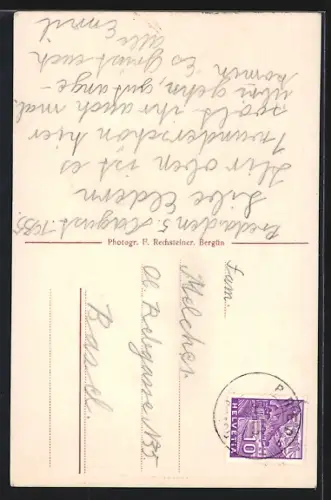 Preda, den 5. August 1935.
Liebe Eltern
Hir oben ist es
wunderschön hier
sollt ihr auch mal
gehn, gut ange-
komen. Es grüsst euch
alle Emil
Photogr. F. Rechsteiner, Bergün
Fam.
Melcher
Ob. Rebgasse No 35
Basel.
PREDA
10
HELVETIA